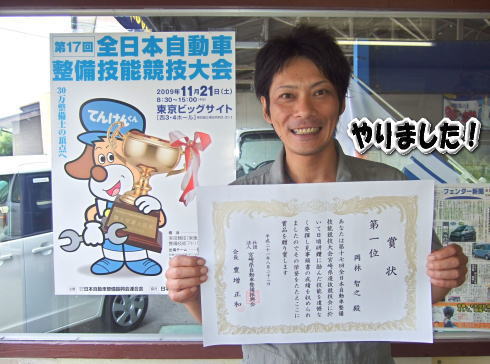 第17回 全日本自動車
整備技能競技大会
2009年11月21日(土)
8:30～15:00
東京ビッグサイト
[西3・4ホール]
30万整備士の頂点へ
てんけんくん
やりました！
フェンダー新聞
賞状
第一位
岡林 智之 殿
あなたは第十七回全日本自動車整備
技能競技大会宮崎県選抜競技会に於
いて日頃研鑽に励んだ技能を遺憾な
く発揮し見事頭書の成績を収められ
ましたのでその栄誉をたたえここに
賞品を贈り賞します
平成二十一年八月二十二日
社団法人 宮崎県自動車整備振興会
会長 豊増 正和